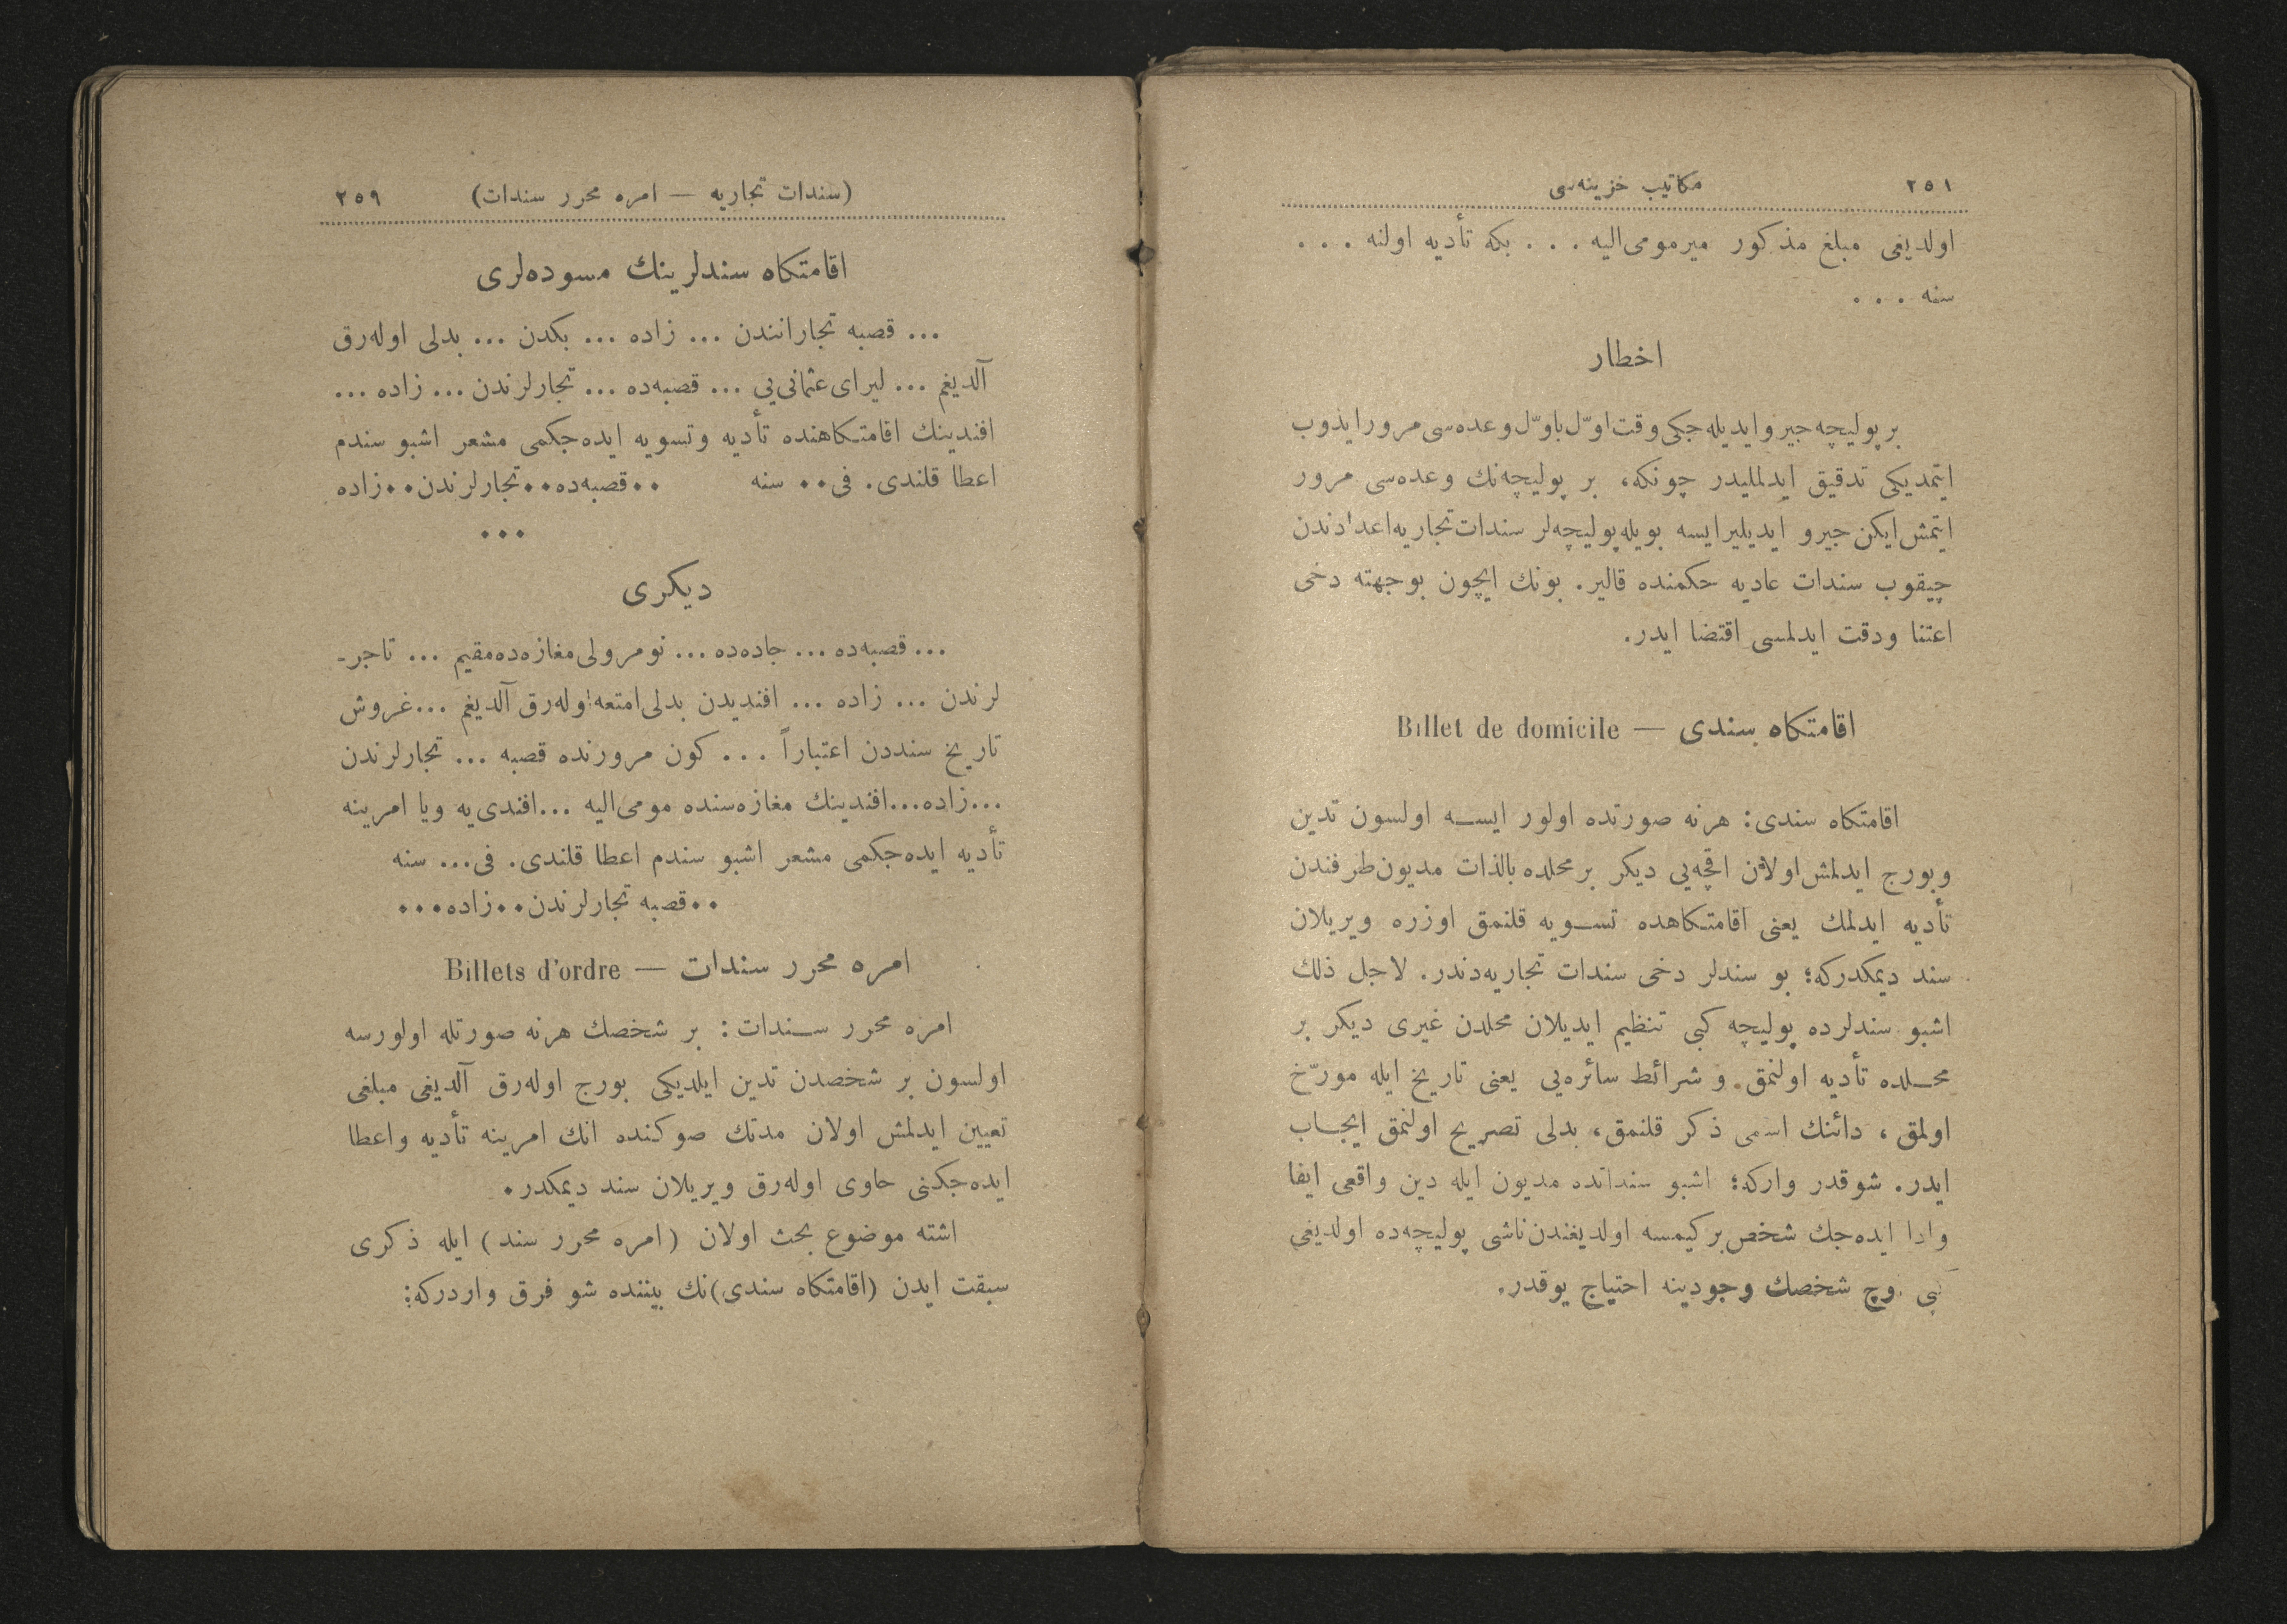 ٢٥١ مكاتيب خزينه‌سى
اولديغى مبلغ مذكور ميرمومى‌اليه . . . بكه تأديه اولنه . . .
سنه . . .
اخطار
بر پوليچه جيرو ايديله‌جكى وقت اوّل باوّل وعده‌سى مرور ايدوب
ايتمديكى تدقيق ايدلمليدر چونكه، بر پوليچه‌نك وعده‌سى مرور
ايتمش ايكن جيرو ايديلير ايسه بويله پوليچه‌لر سندات تجاريه اعدادندن
چيقوب سندات عاديه حكمنده قالير. بونك ايچون بوجهته دخى
اعتنا ودقت ايدلمسى اقتضا ايدر.
اقامتكاه سندى — Billet de domicile
اقامتكاه سندى: هرنه صورتده اولور ايسه اولسون تدين
وبورج ايدلمش اولان اقچه‌يى ديكر بر محلده بالذات مديون طرفندن
تأديه ايدلمك يعنى اقامتكاهده تسويه قلنمق اوزره ويريلان
سند ديمكدركه؛ بو سندلر دخى سندات تجاريه‌دندر. لاجل ذلك
اشبو سندلرده پوليچه كبى تنظيم ايديلان محلدن غيرى ديكر بر
محلده تأديه اولنمق. و شرائط سائره‌يى يعنى تاريخ ايله مورّخ
اولمق، دائنك اسمى ذكر قلنمق، بدلى تصريح اولنمق ايجاب
ايدر. شوقدر واركه؛ اشبو سنداتده مديون ايله دين واقعى ايفا
وادا ايده‌جك شخص بر كيمسه اولديغندن ناشى پوليچه‌ده اولديغى
بى وچ شخصك وجودينه احتياج يوقدر.
(سندات تجاريه — امره محرر سندات) ٢٥٩
اقامتكاه سندلرينك مسوده‌لرى
... قصبه تجارانندن ... زاده ... بكدن ... بدلى اوله‌رق
آلديغم ... ليراى عثمانى‌يى ... قصبه‌ده ... تجارلرندن ... زاده ...
افندينك اقامتكاهنده تأديه وتسويه ايده‌جكمى مشعر اشبو سندم
اعطا قلندى. فى .. سنه .. قصبه‌ده .. تجارلرندن .. زاده
...
ديكرى
... قصبه‌ده ... جاده‌ده ... نومرولى مغازه‌ده مقيم ... تاجر-
لرندن ... زاده ... افنديدن بدلى امتعه اوله‌رق آلديغم ... غروش
تاريخ سنددن اعتباراً ... كون مرورنده قصبه ... تجارلرندن
... زاده ... افندينك مغازه‌سنده مومى‌اليه ... افندى‌يه ويا امرينه
تأديه ايده‌جكمى مشعر اشبو سندم اعطا قلندى. فى ... سنه
.. قصبه تجارلرندن .. زاده ...
امره محرر سندات — Billets d'ordre
امره محرر سندات: بر شخصك هرنه صورتله اولورسه
اولسون بر شخصدن تدين ايلديكى بورج اوله‌رق آلديغى مبلغى
تعيين ايدلمش اولان مدتك صوكنده انك امرينه تأديه واعطا
ايده‌جكنى حاوى اوله‌رق ويريلان سند ديمكدر.
اشته موضوع بحث اولان (امره محرر سند) ايله ذكرى
سبقت ايدن (اقامتكاه سندى)نك بيننده شو فرق واردركه: